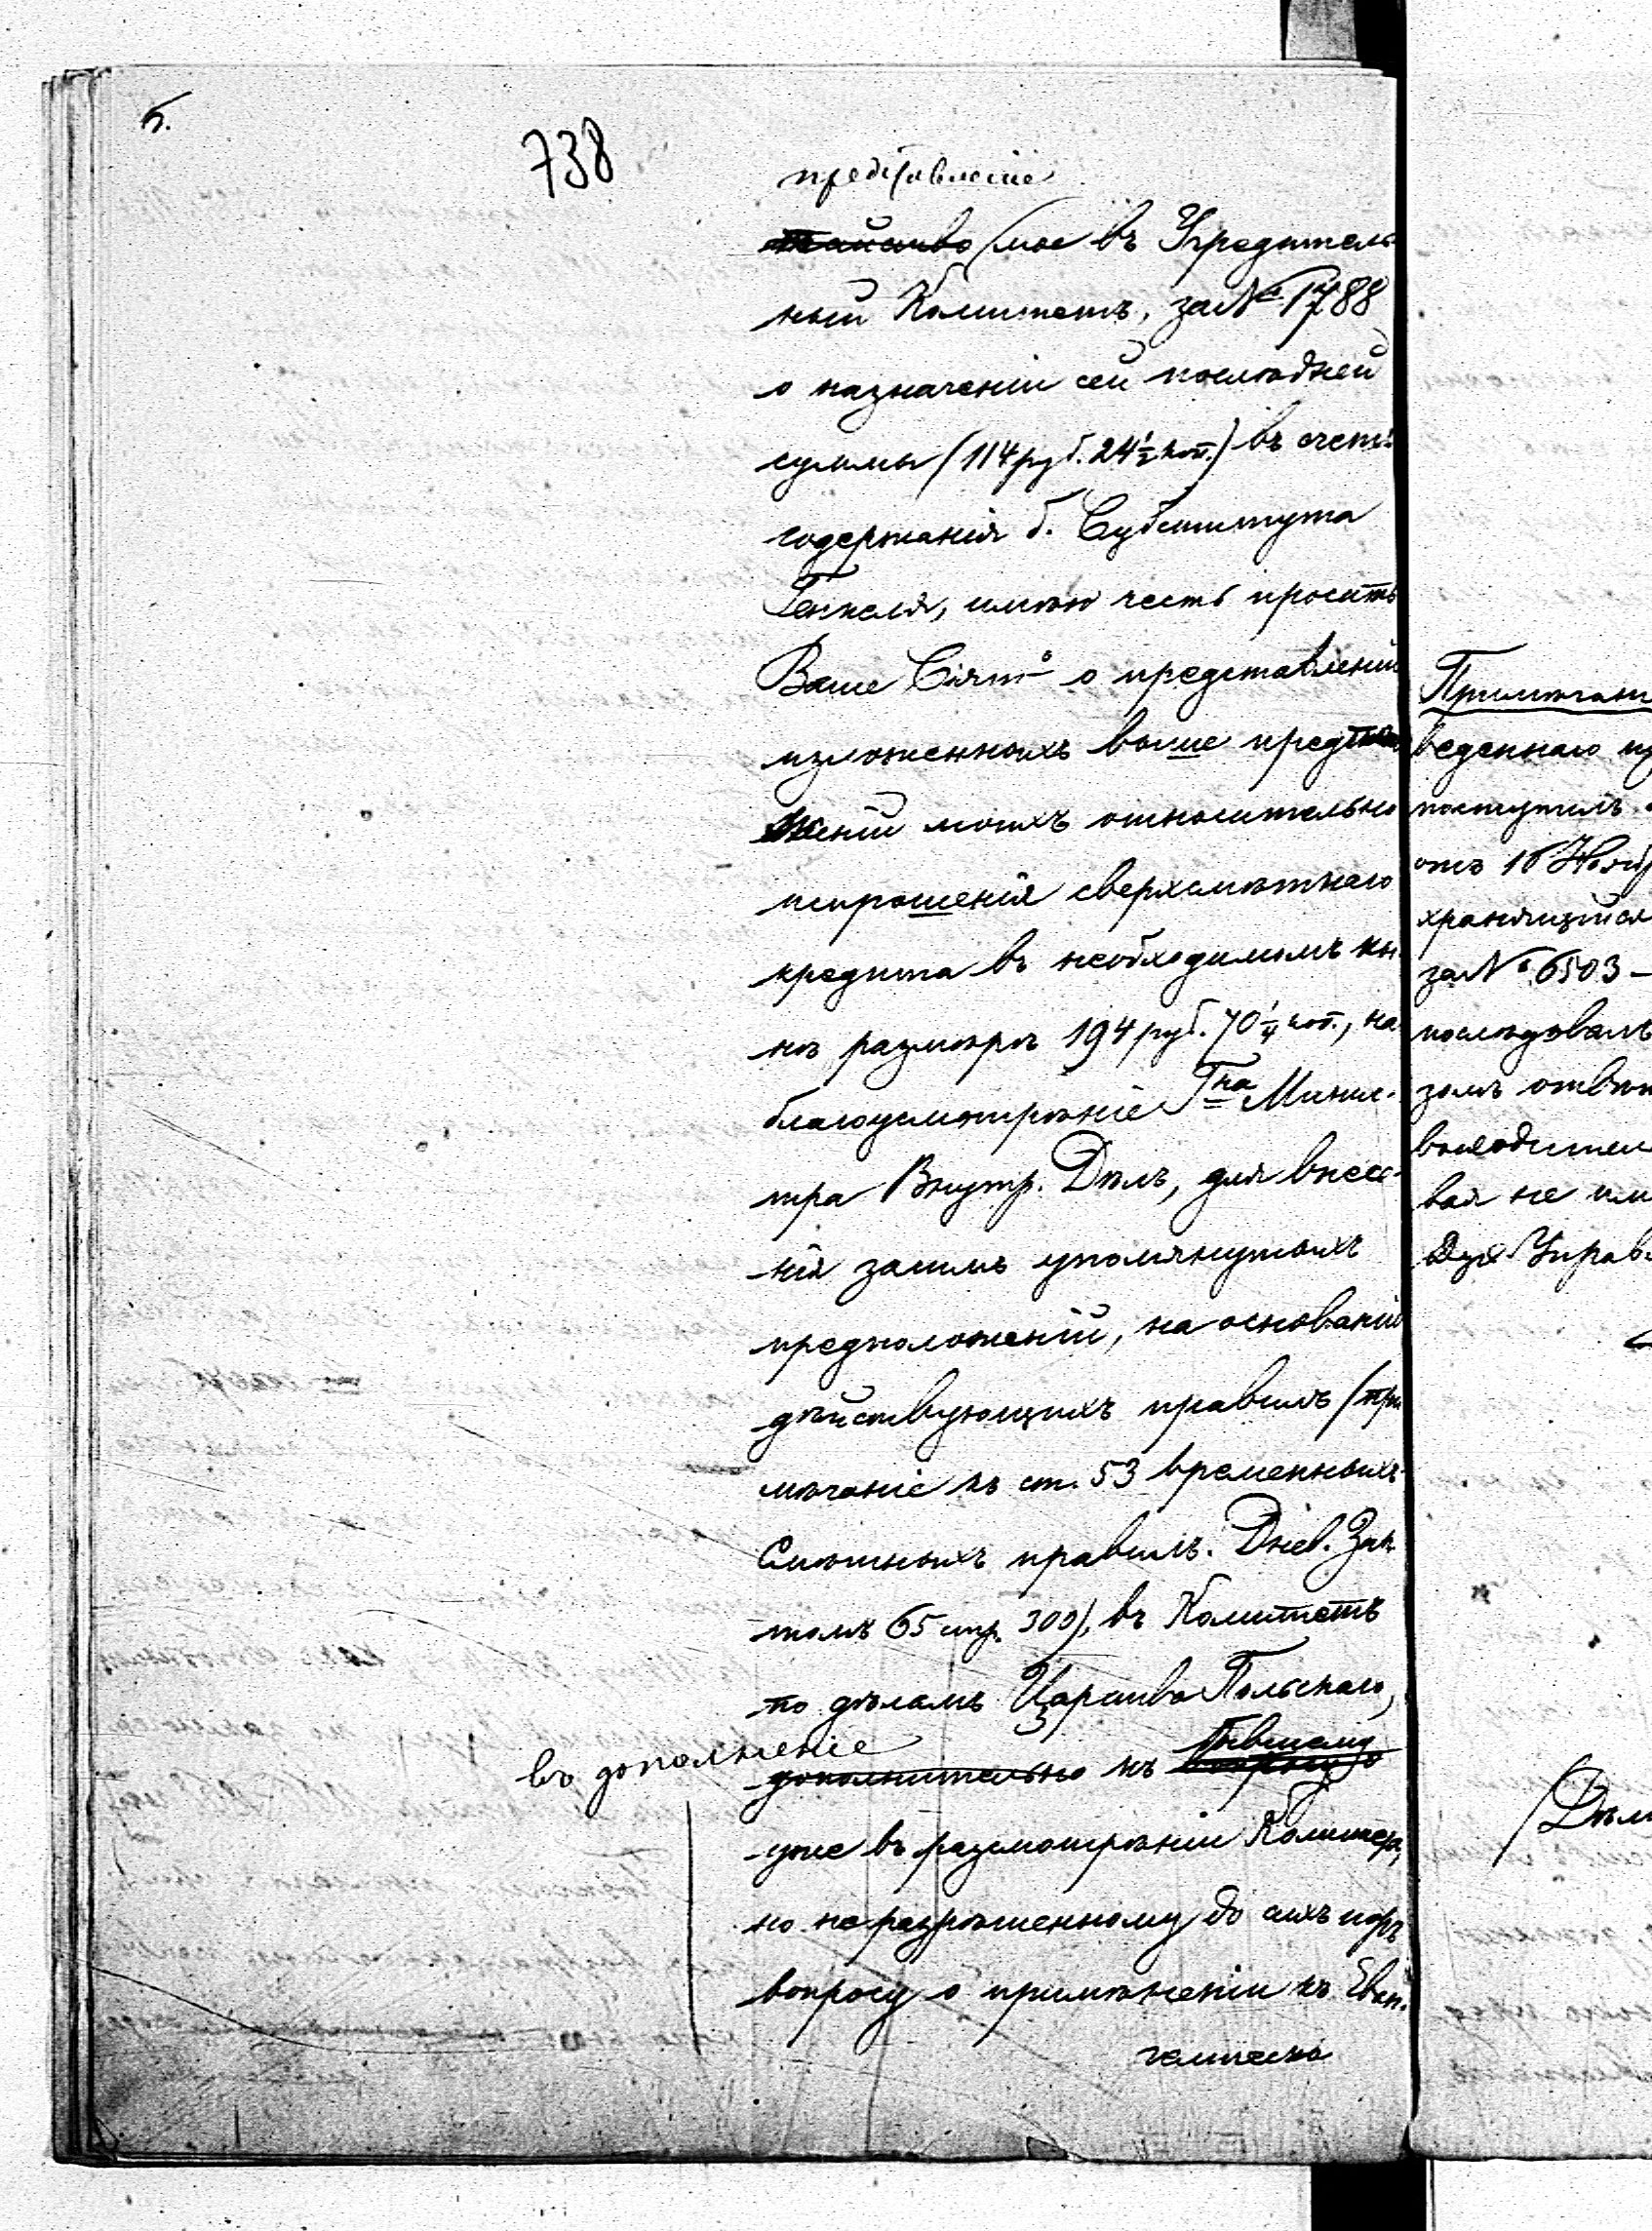 5.
738
представленіе
мое въ Учредитель
ный Комитетъ, за № 1788
о назначеніи сей послѣдней
суммы (114 руб. 24 1/2 коп.) въ счетъ
содержанія б. Субститута
Генкеля, имѣю честь просить
Ваше Сіят-о о представленіи
изложенныхъ выше предпо
женій моихъ относительно
испрошенія сверхсмѣтнаго
кредита въ необходимомъ ны
нѣ размѣрѣ 194 руб. 70 1/4 коп., на
благоусмотрѣніе Гна Минис-
тра Внутр. Дѣлъ, для внесе-
нія засимъ упомянутыхъ
предположеній, на основаніи
дѣйствующихъ правилъ (при
мѣчаніе къ ст. 53 временныхъ
Смѣтныхъ правилъ. Днев. Зак.
томъ 65 стр. 309), въ Комитетъ
по дѣламъ Царства Польскаго,
въ дополненіе
дополнительно къ бывшему
уже въ разсмотрѣніи Комитета,
но не разрѣшенному до сихъ поръ
вопросу о примѣненіи къ Еван-
гелическо
Примѣчані
веденнаго пр
поступилъ
отъ 16 Нояб
хранящійся
за № 6503 —
послѣдовалъ
зомъ отвѣт
вая не им
Дух. Управ